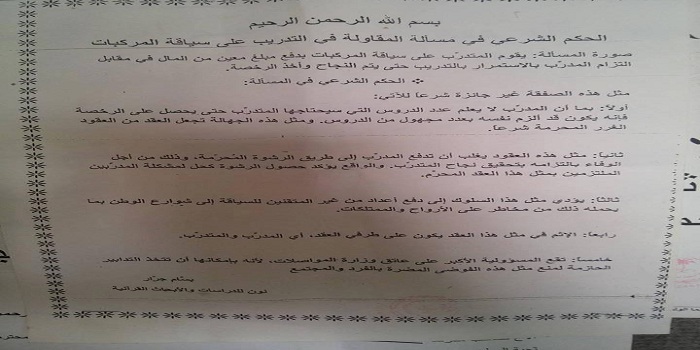 بسم الله الرحمن الرحيم
الحكم الشرعي في مسألة المقاولة في التدريب على سياقة المركبات
صورة المسألة: يقوم المتدرّب على سياقة المركبات بدفع مبلغ معين من المال في مقابل
التزام المدرّب بالاستمرار بالتدريب حتى يتم النجاح وأخذ الرخصة.
❖ الحكم الشرعي في المسألة:
مثل هذه الصفقة غير جائزة شرعاً للآتي:
أولاً: بما أن المدرب لا يعلم عدد الدروس التي سيحتاجها المتدرّب حتى يحصل على الرخصة
فإنه يكون قد ألزم نفسه بعدد مجهول من الدروس. ومثل هذه الجهالة تجعل العقد من العقود
الغرر المحرمة شرعاً.
ثانياً: مثل هذه العقود يغلب أن تدفع المدرّب إلى طريق الرشوة المُحرّمة، وذلك من أجل
الوفاء بالتزامه بتحقيق نجاح المتدرّب. والواقع يؤكد حصول الرشوة كحل لمشكلة المدرّبين
الملتزمين بمثل هذا العقد المحرّم.
ثالثاً: يؤدي مثل هذا السلوك إلى دفع أعداد من غير المتقنين للسياقة إلى شوارع الوطن بما
يحمله ذلك من مخاطر على الأرواح والممتلكات.
رابعاً: الإثم في مثل هذا العقد يكون على طرفي العقد، أي المدرب والمتدرب.
خامساً: تقع المسؤولية الأكبر على عاتق وزارة المواصلات، لأنه بإمكانها أن تتخذ التدابير
الحازمة لمنع مثل هذه الفوضى المضرة بالفرد والمجتمع
بسام جرار
نون للدراسات والأبحاث القرآنية